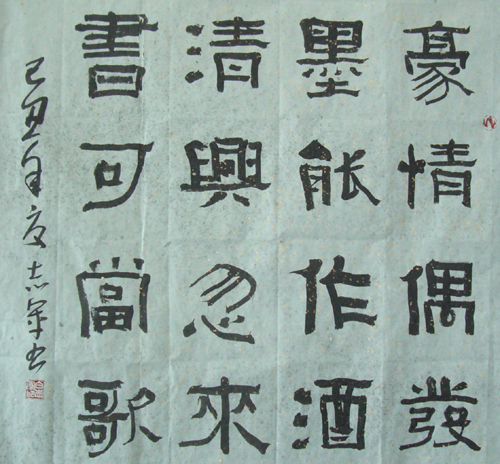 豪情偶發
墨能作酒
清興忽來
書可當歌
己丑年夏志軍书